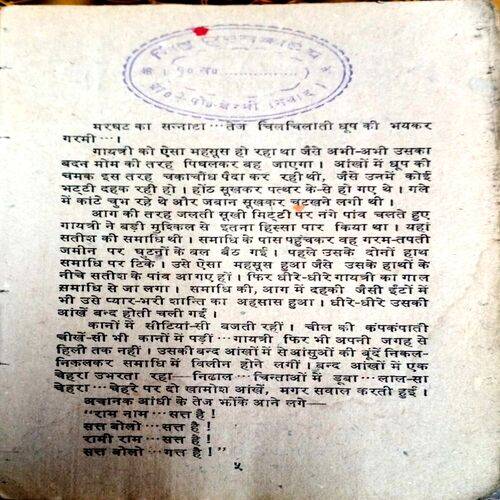 पु० सं०
मरघट का सन्नाटा ··· तेज चिलचिलाती धूप की भयंकर
गरमी ··· ।
गायत्री को ऐसा महसूस हो रहा था जैसे अभी-अभी उसका
बदन मोम की तरह पिघलकर बह जाएगा। आंखों में धूप की
चमक इस तरह चकाचौंध पैदा कर रही थी, जैसे उनमें कोई
भट्टी दहक रही हो। होंठ सूखकर पत्थर के-से हो गए थे। गले
में कांटे चुभ रहे थे और जबान सूखकर चटखने लगी थी।
आग की तरह जलती सूखी मिट्टी पर नंगे पांव चलते हुए
गायत्री ने बड़ी मुश्किल से इतना हिस्सा पार किया था। यहां
सतीश की समाधि थी। समाधि के पास पहुंचकर वह गरम-तपती
जमीन पर घुटनों के बल बैठ गई। पहले उसके दोनों हाथ
समाधि पर टिके। उसे ऐसा महसूस हुआ जैसे उसके हाथों के
नीचे सतीश के पांव आ गए हों। फिर धीरे-धीरे गायत्री का गाल
समाधि से जा लगा। समाधि की, आग में दहकी जैसी ईंटों में
भी उसे प्यार-भरी शान्ति का अहसास हुआ। धीरे-धीरे उसकी
आंखें बन्द होती चली गईं।
कानों में सीटियां-सी बजती रहीं। चील की कंपकंपाती
चीखें-सी भी कानों में पड़ीं ··· गायत्री फिर भी अपनी जगह से
हिली तक नहीं। उसकी बन्द आंखों में से आंसुओं की बूंदें निकल-
निकलकर समाधि में विलीन होने लगीं। बन्द आंखों में एक
चेहरा उभरता रहा — निढाल ··· चिन्ताओं में डूबा ··· लाल-सा
चेहरा ··· चेहरे पर दो खामोश आंखें, मगर सवाल करती हुई।
अचानक आंधी के तेज झोंके आने लगे—
"राम नाम ··· सत्त है !
सत्त बोलो ··· सत्त है !
रामी राम ··· सत्त है !
सत्त बोलो ··· गत्त है !"
५